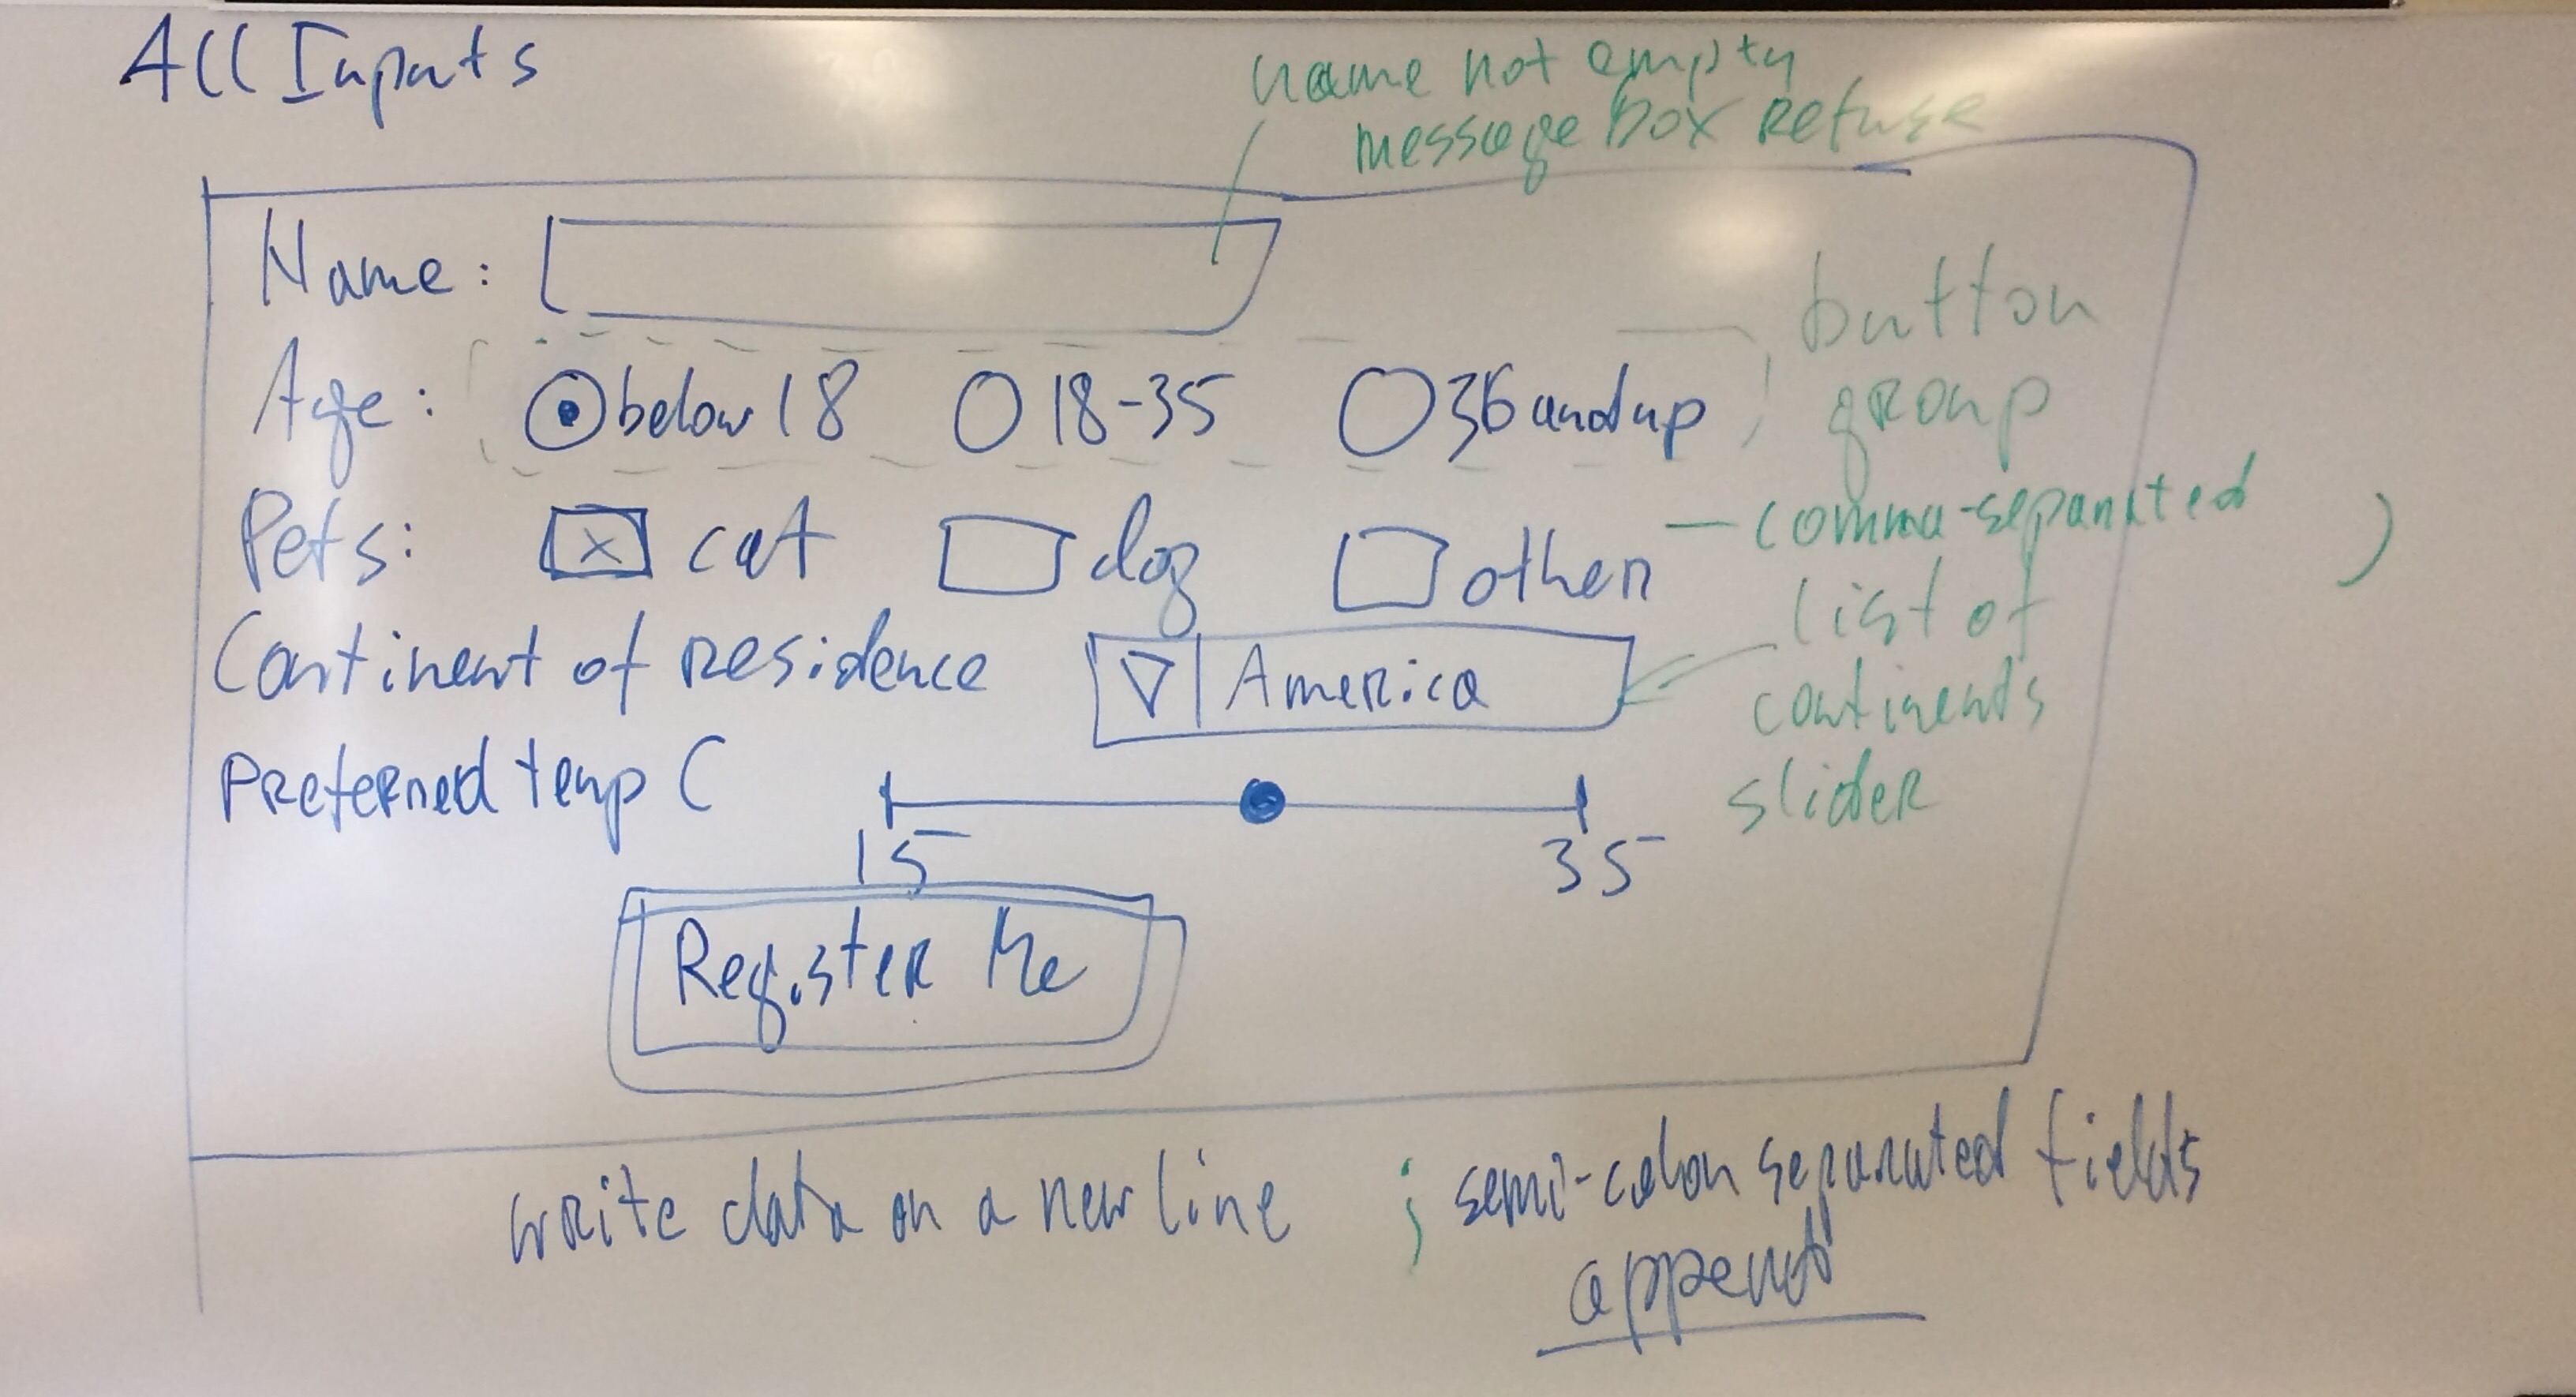 All Inputs
name not empty
message box refuse
Name:
button
group
Age: below 18 18-35 36 and up
Pets: cat dog other
comma-separated ,
Continent of residence America
list of
continents
Preferred temp C
slider
15 35
Register Me
write data on a new line ; semi-colon separated fields
append